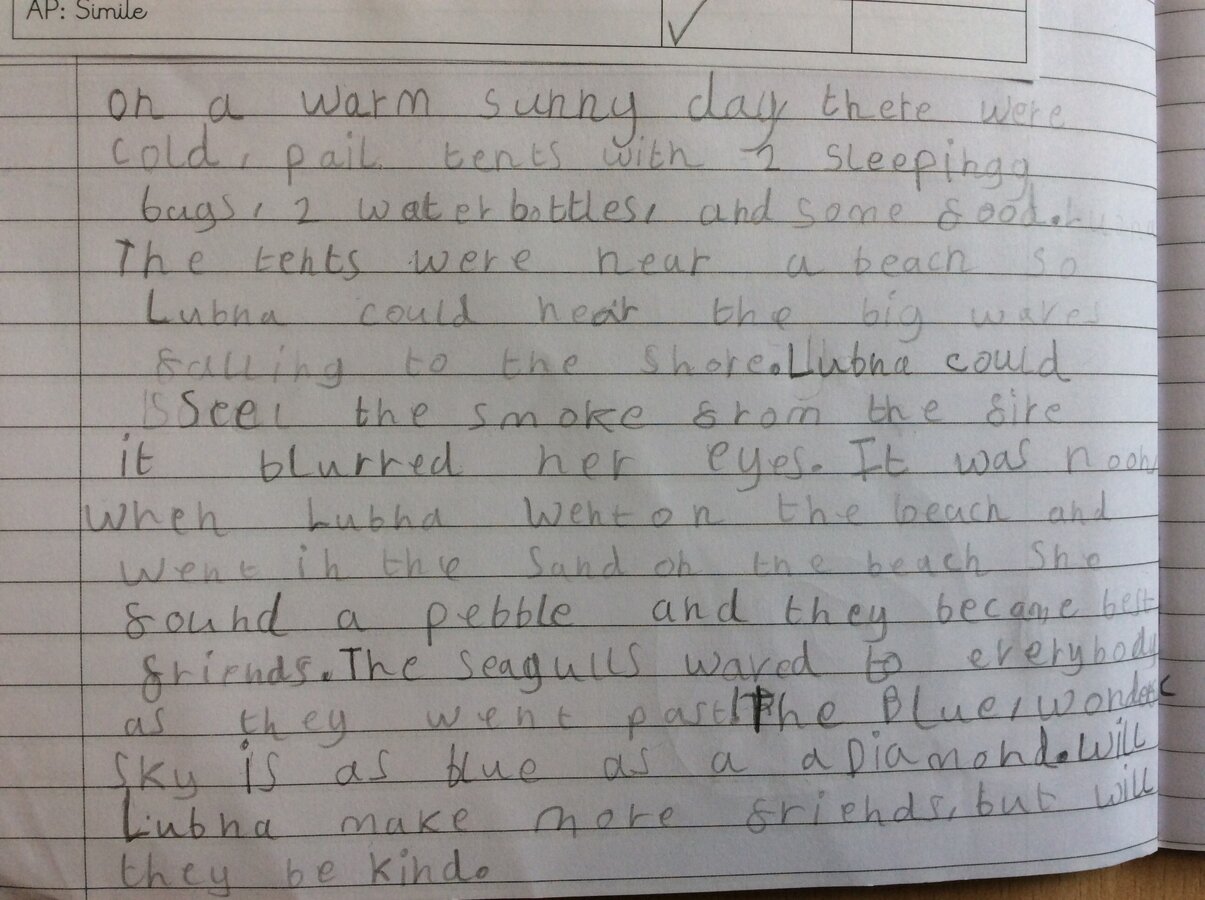 AP: Simile
on a warm sunny day, there were
cold, pail tents with 2 sleepingg
bags, 2 water bottles, and some food.
The tents were near a beach so
Lubna could hear the big waves
falling to the shore. Lubna could
see, the smoke from the fire
it blurred her eyes. It was noon,
when Lubna went on the beach and
went in the sand on the beach She
found a pebble and they became best
friends. The seagulls waved to everybody
as they went past The Blue, wonder
sky is as blue as a a Diamond. will
Lubna make more friends, but will
they be kind.